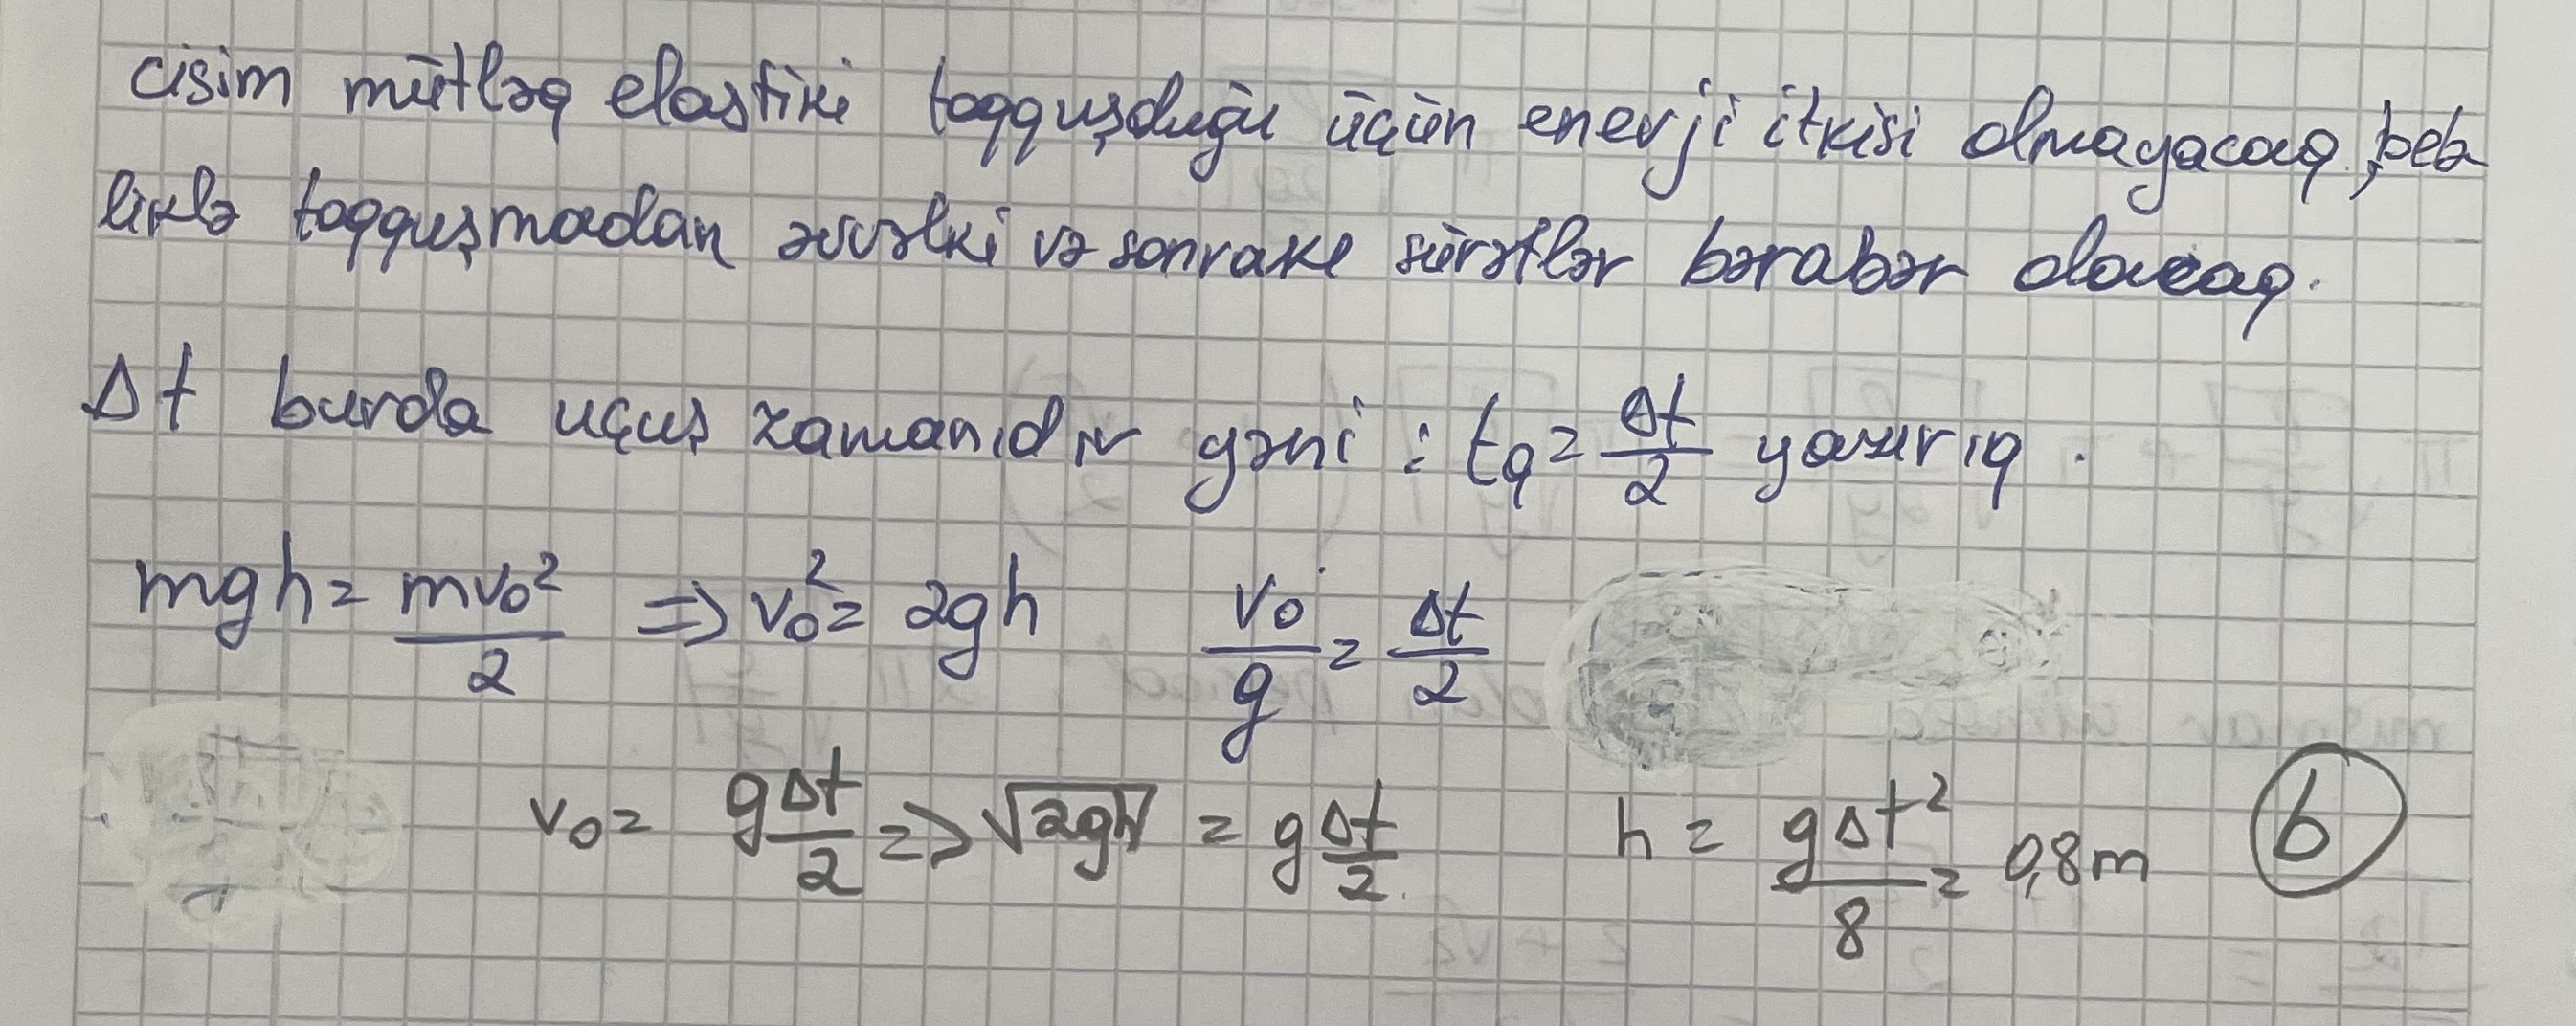 cisim mütləq elastiki toqquşduğu üçün enerji itkisi olmayacaq, belə
liklə toqquşmadan əvvəlki və sonrakı sürətlər bərabər olacaq.
Δt burda uçuş zamanıdır yəni : tq = Δt/2 yazırıq .
mgh = mv₀²/2 => v₀² = 2gh v₀/g = Δt/2
v₀ = gΔt/2 => √2gh = gΔt/2 h = gΔt²/8 = 0,8m b